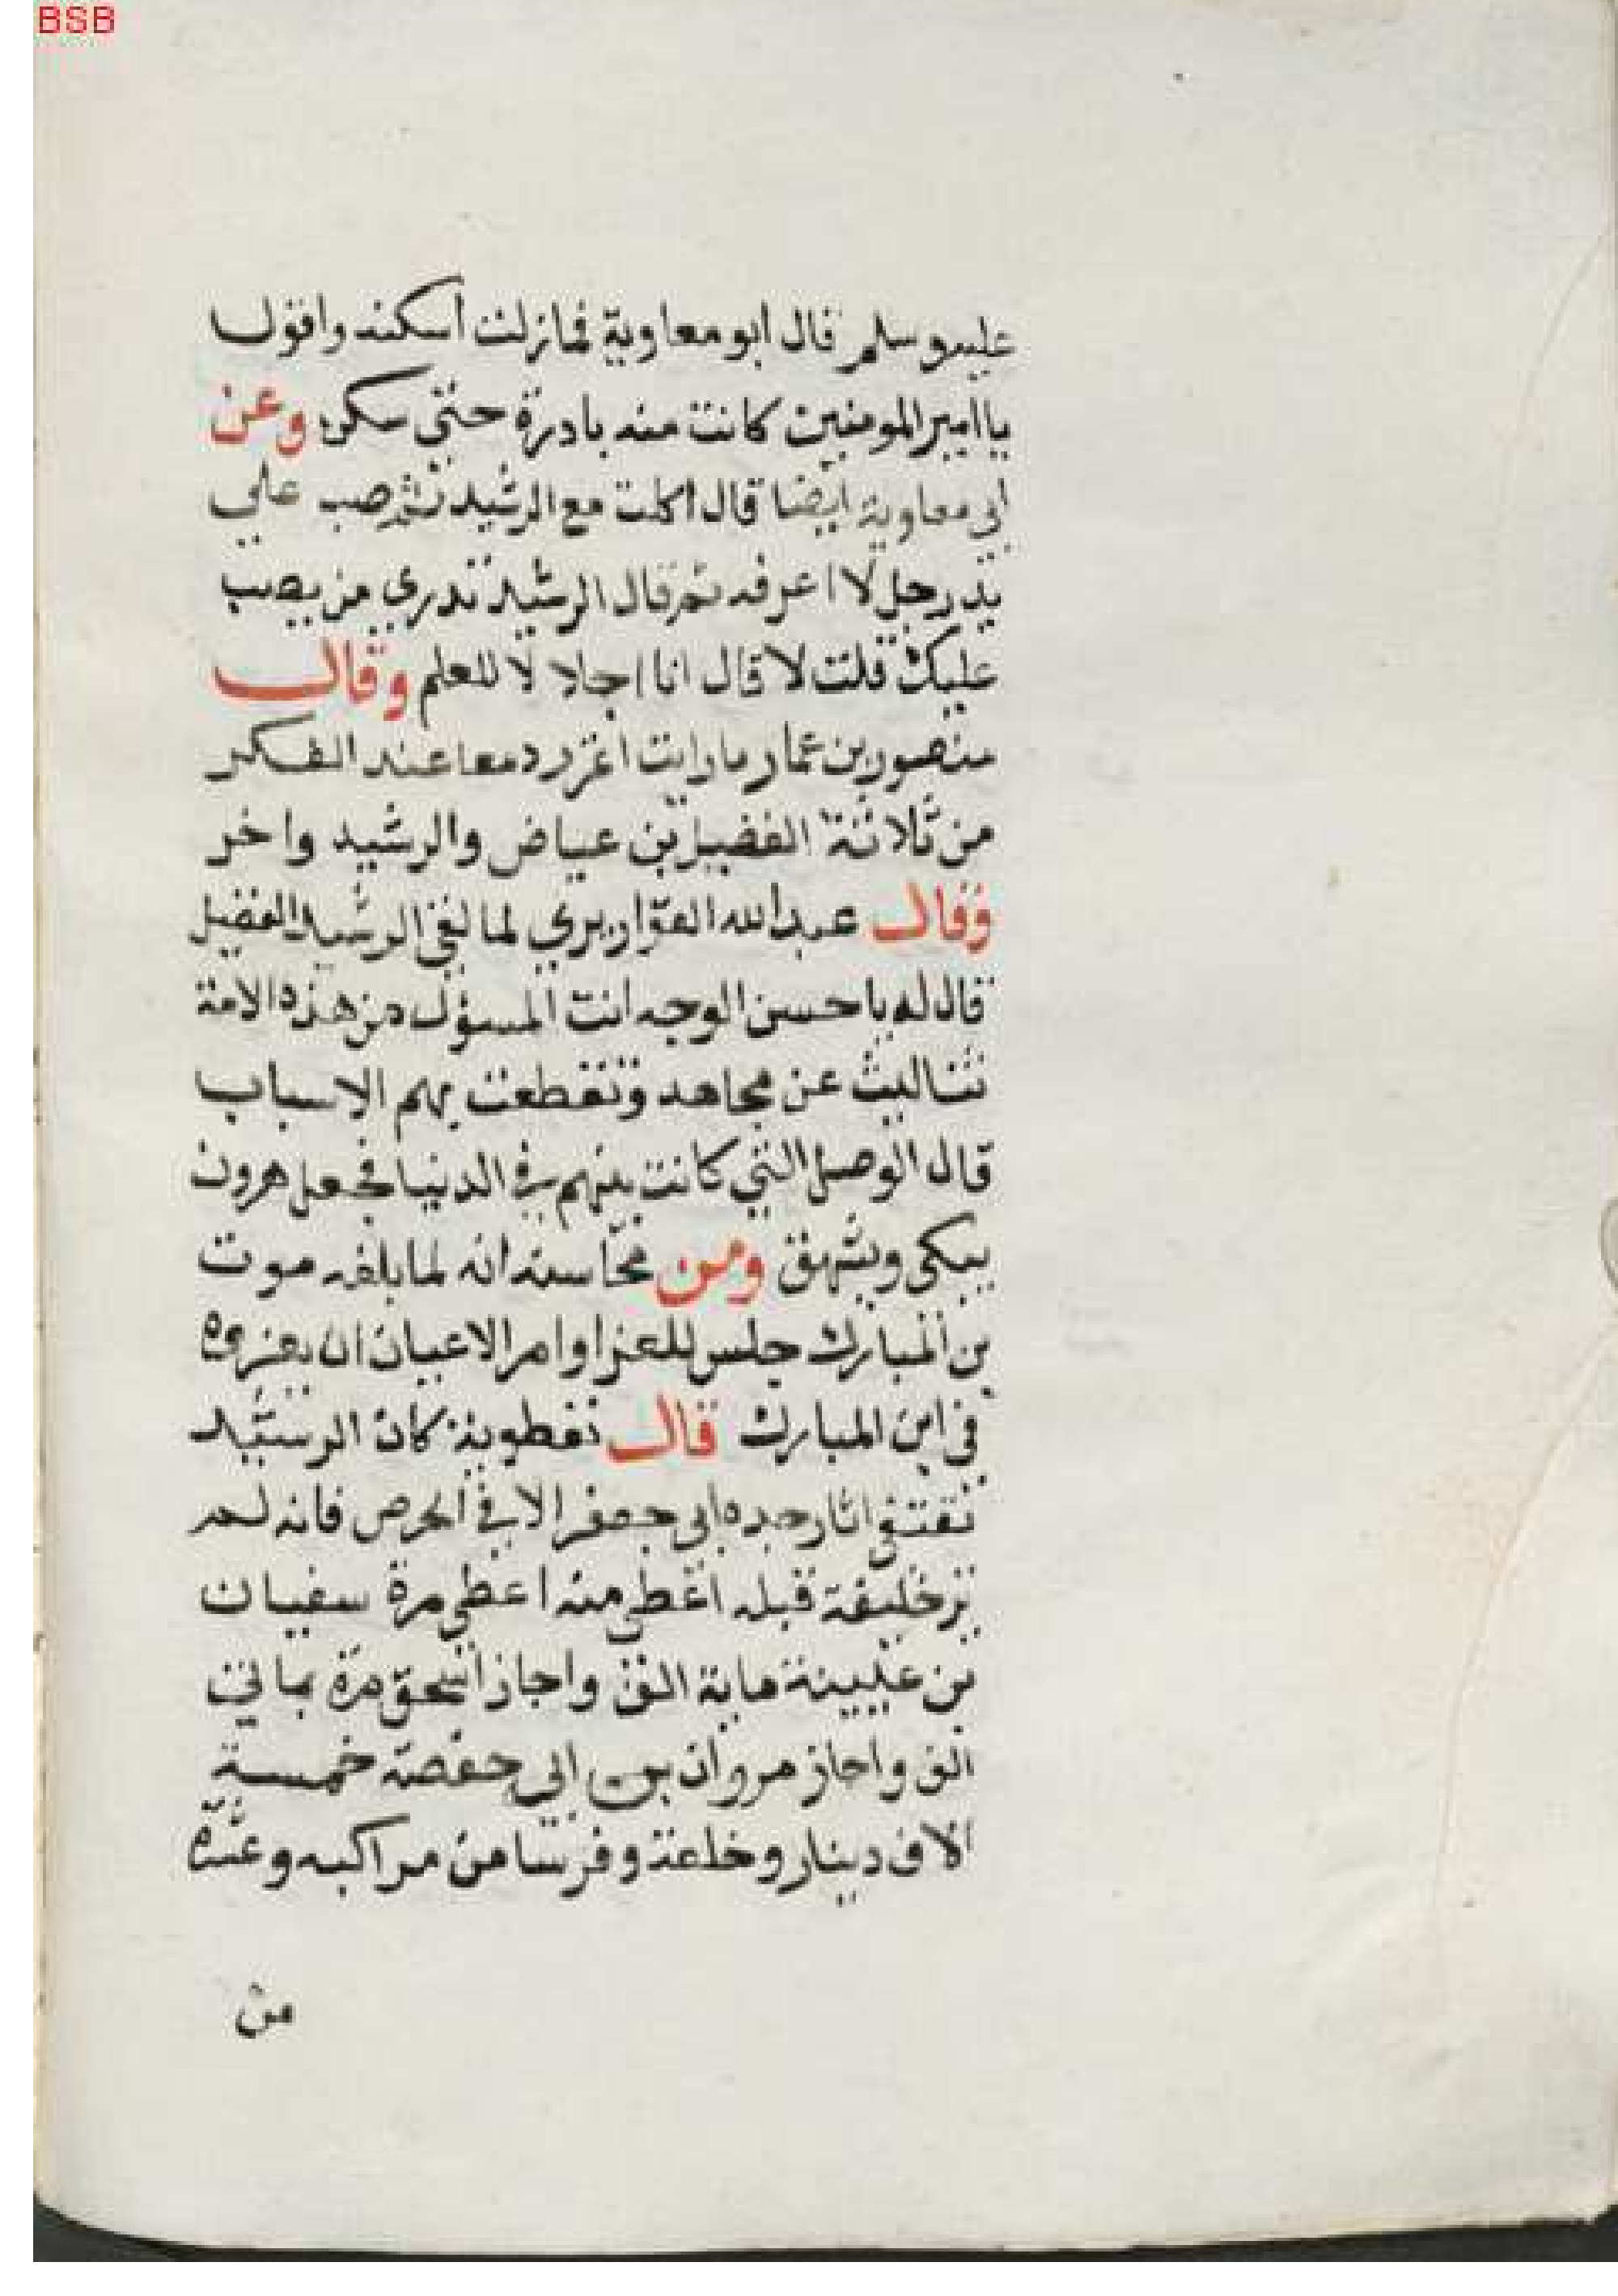 BSB
عليه وسلم قال ابو معاوية فمازلت أسكنه واقول
يا امير المومنين كانت منه بادرة حتى سكن وعن
ابي معاوية ايضا قال اكلت مع الرشيد ثم صب علي
يدي رجل لا اعرفه ثم قال الرشيد تدري من يصب
عليك قلت لا قال انا اجلالا للعلم وقال
منصور بن عمار ما رايت اغزر دمعا عند الفكر
من ثلاثة الفضيل بن عياض والرشيد واخر
وقال عبد الله القواريري لما لقى الرشيد الفضيل
قال له يا حسن الوجه انت المسؤل من هذه الامة
ثنا ليث عن مجاهد وتقطعت بهم الاسباب
قال الوصل التي كانت بينهم في الدنيا فجعل هرون
يبكي ويشهق ومن محاسنه انه لما بلغه موت
بن المبارك جلس للعزا وامر الاعيان ان يعزوه
في ابن المبارك قال نفطوية كان الرشيد
تقتفي اثار جده ابي جعفر الا في الحرص فانه لم
نر خليفة قبله اعطى منه اعطى مرة سفيان
بن عيينة ماية الف واجاز اسحق مرة بماتي
الف واجاز مروان بن ابي حفصة خمسة
الاف دينار وخلعة وفرسا من مراكبه وعشرة
من